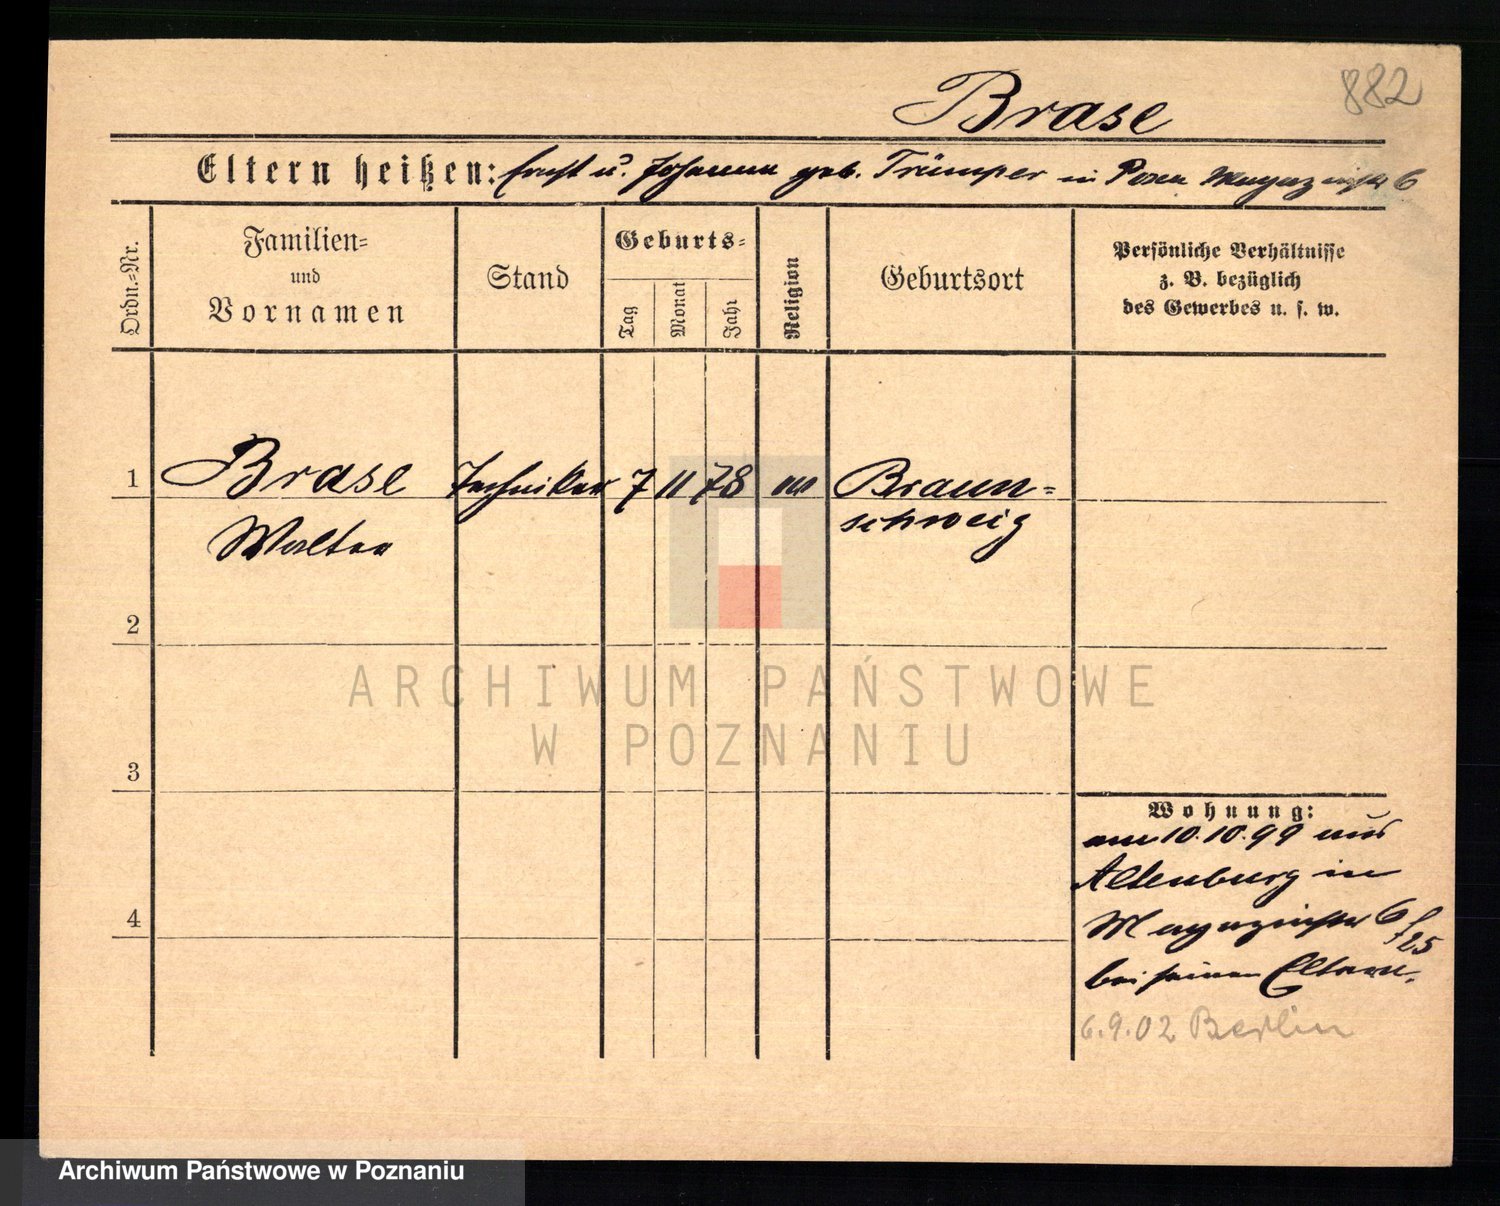 882
Brase
Eltern heißen: Ernst u. Johanna geb. Trümper in Posen Magazinstr 6
Ordn.-Nr.
Familien-
und
Vornamen
Stand
Geburts-
Tag
Monat
Jahr
Religion
Geburtsort
Persönliche Verhältnisse
z. B. bezüglich
des Gewerbes u. s. w.
1 Brase Techniker 7 11 78 Braun-
Walter schweig
2
3
4
Wohnung:
am 10.10.99 aus
Altenburg in
Magazinstr 6
25
bei seinen Eltern.
6.9.02 Berlin
ARCHIWUM PAŃSTWOWE
W POZNANIU
Archiwum Państwowe w Poznaniu